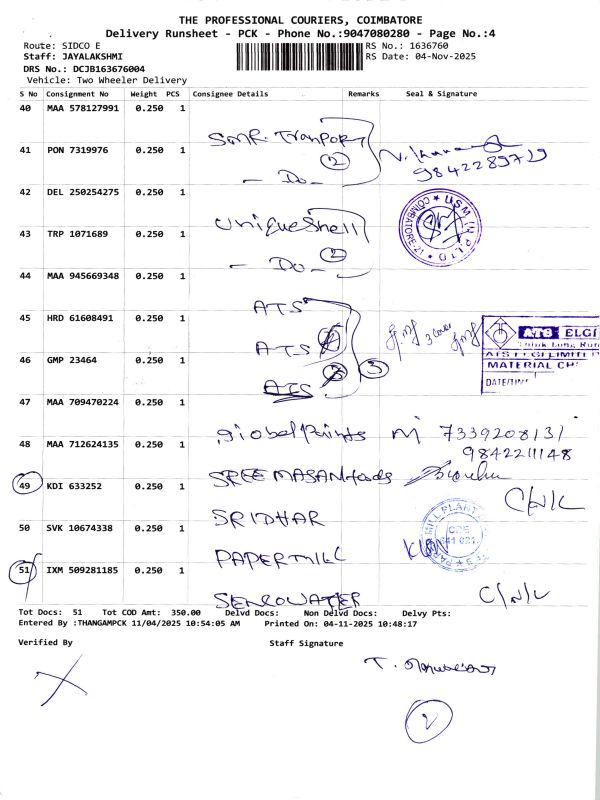 THE PROFESSIONAL COURIERS, COIMBATORE
Delivery Runsheet - PCK - Phone No.:9047080280 - Page No.:4
Route: SIDCO E
RS No.: 1636760
Staff: JAYALAKSHMI
RS Date: 04-Nov-2025
DRS No.: DCJB163676004
Vehicle: Two Wheeler Delivery
S No Consignment No Weight PCS Consignee Details Remarks Seal & Signature
40 MAA 578127991 0.250 1
SMR. Tranport
41 PON 7319976 0.250 1
9842289729
- Do - 2
42 DEL 250254275 0.250 1
Unique Shell
COIMBATORE-21
43 TRP 1071689 0.250 1
- Do - 2
44 MAA 945669348 0.250 1
ATS
45 HRD 61608491 0.250 1
ATS ELGI
ATS
ATS ELGI LIMITED
46 GMP 23464 0.250 1
3
MATERIAL
ATS
DATE/TIME
47 MAA 709470224 0.250 1
global Paints M 7339208131
9842211148
48 MAA 712624135 0.250 1
SREE MASANI foods
49 KDI 633252 0.250 1
C/N/L
SRIDHAR
50 SVK 10674338 0.250 1
PAPERMILL
51 IXM 509281185 0.250 1
SENCOWATER C/N/L
Tot Docs: 51 Tot COD Amt: 350.00 Delvd Docs: Non Delvd Docs: Delvy Pts:
Entered By :THANGAMPCK 11/04/2025 10:54:05 AM Printed On: 04-11-2025 10:48:17
Verified By Staff Signature